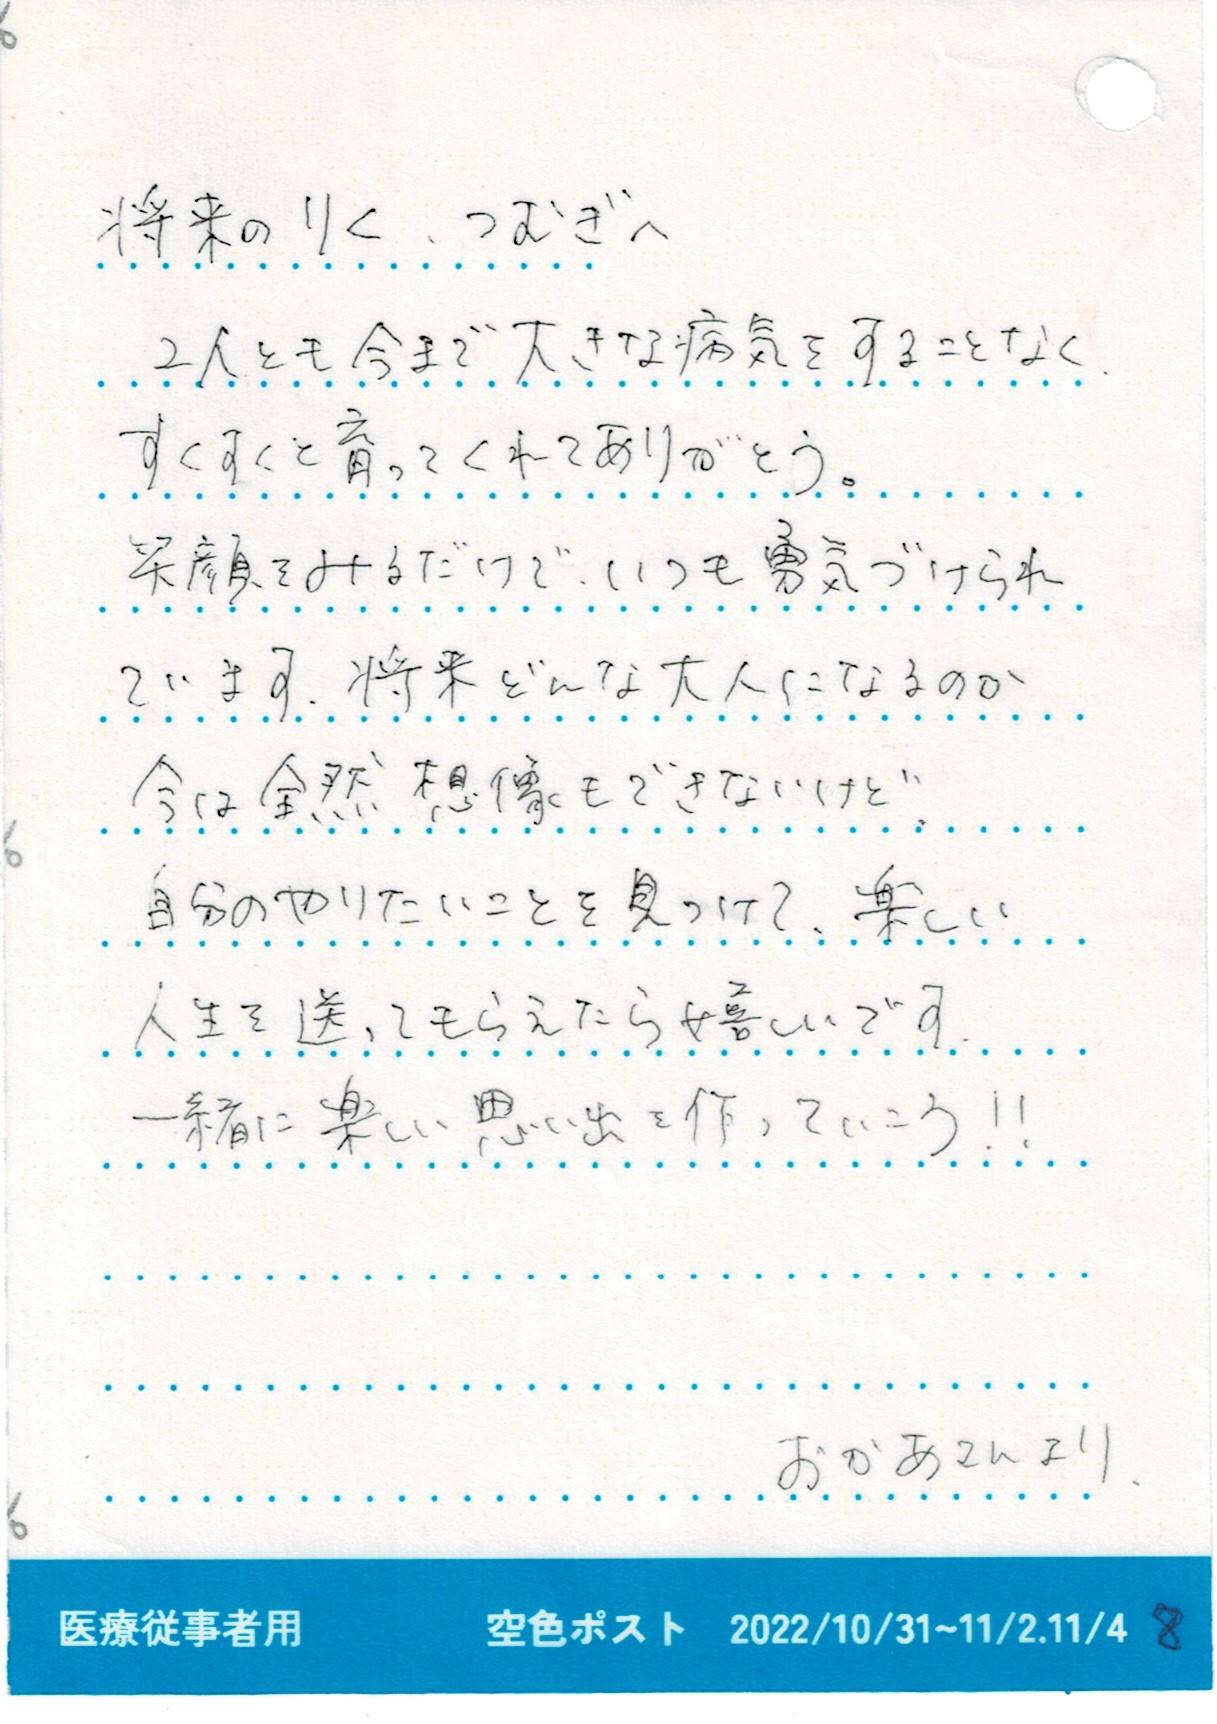 将来のりく、つむぎへ
2人とも今まで大きな病気をすることなく、
すくすくと育ってくれてありがとう。
笑顔をみるだけで、いつも勇気づけられ
ています。将来どんな大人になるのか
今は全然想像もできないけど、
自分のやりたいことを見つけて、楽しい
人生を送ってもらえたら嬉しいです。
一緒に楽しい思い出を作っていこう!!
おかあさんより.
医療従事者用 空色ポスト 2022/10/31~11/2.11/4 8